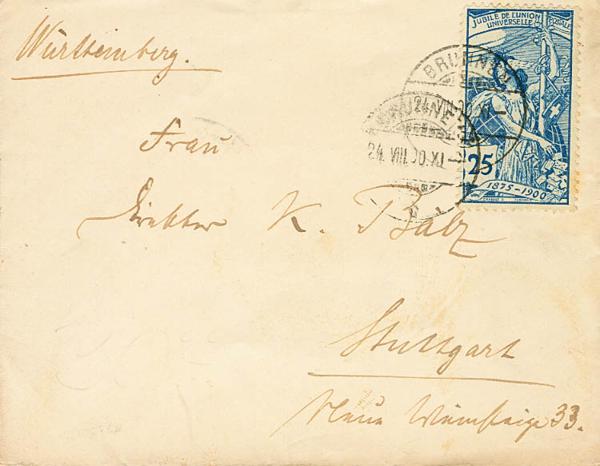 Württemberg.
JUBILÉ DE L'UNION
UNIVERSELLE POSTALE
BRUNNEN
24.VIII.00.XI
25
1875-1900
Frau
Direktor K. Balz
Stuttgart
Neue Weinsteige 33.